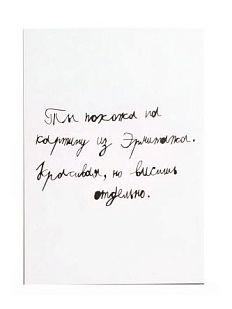 Ты похожа на
картину из Эрмитажа.
Красивая, но висишь
отдельно.